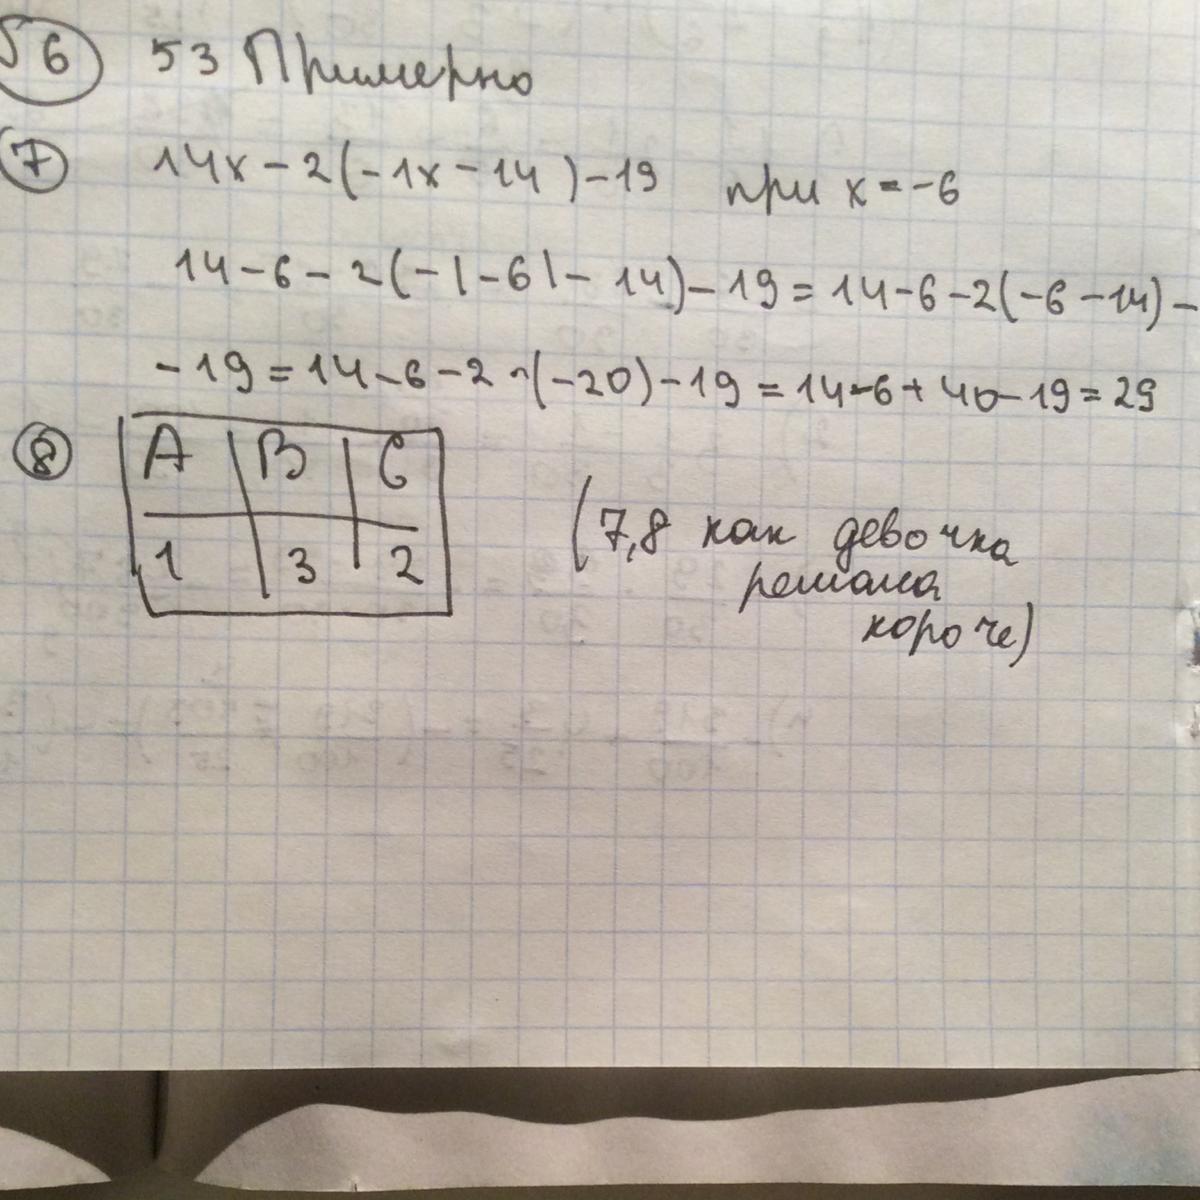 56 53 Примерно
7 14x-2(-1x-14)-19 при x=-6
14-6-2(-|-6|-14)-19=14-6-2(-6-14)-
-19=14-6-2·(-20)-19=14-6+40-19=29
8 A B C
1 3 2
(7,8 как девочка
решала
короче)